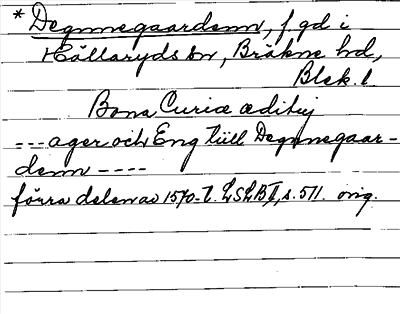 * Degnnegaardenn, f. gd i
Hällaryds sn, Bräkne hd,
Blek. l.
Bona Curiæ ædituj
--- ager och Eng tiill Degnnegaar-
denn ----
förra delen av 1570-t. LSLB II, s. 511. orig.